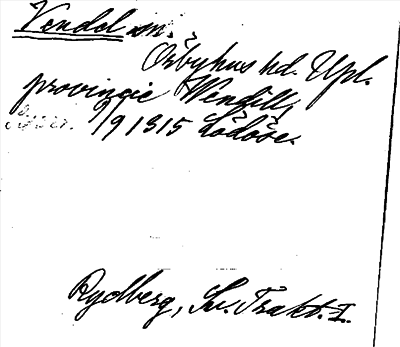 Vendel sn.
Örbyhus hd. Upl.
provincie Wendill,
19/9 1315 Lödöse.
Rydberg, Sv. Trakt. I.